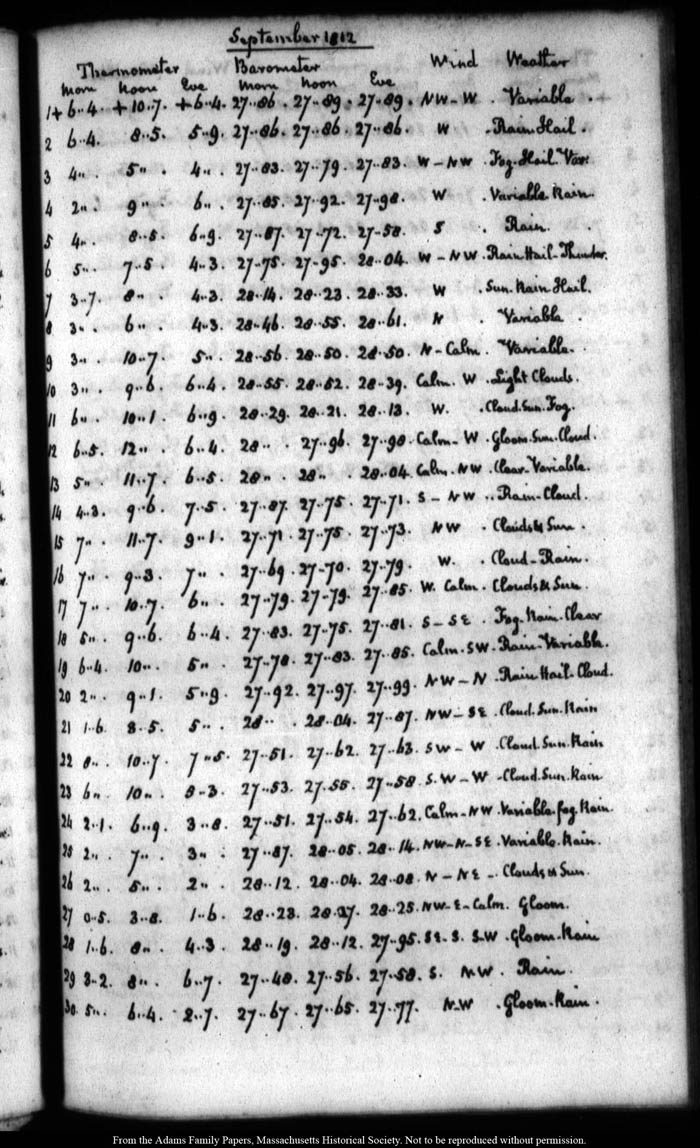 September 1812
Thermometer Barometer Wind Weather
morn noon Eve morn noon Eve
1 + 6..4. + 10..7. + 6..4. 27..86. 27..89. 27..89. NW-W. Variable.
2 6..4. 8..5. 5..9. 27..86. 27..86. 27..86. W. Rain. Hail.
3 4.. 5.. 4.. 27..83. 27..79. 27..83. W-NW. Fog. Hail. Var:
4 2.. 9.. 6.. 27..85. 27..92. 27..98. W. Variable Rain
5 4.. 8..5. 6..9. 27..87. 27..72. 27..58. S. Rain.
6 5.. 7..5. 4..3. 27..75. 27..95. 28..04. W-NW. Rain. Hail. Thunder.
7 3..7. 8.. 4..3. 28..14. 28..23. 28..33. W. Sun. Rain Hail.
8 3.. 6.. 4..3. 28..46. 28..55. 28..61. N. Variable.
9 3.. 10..7. 5.. 28..56. 28..50. 28..50. N-Calm. Variable.
10 3.. 9..6. 6..4. 28..55. 28..52. 28..39. Calm. W. Light Clouds.
11 6.. 10..1. 6..9. 28..29. 28..21. 28..13. W. Cloud. Sun. Fog.
12 6..5. 12.. 6..4. 28.. 27..96. 27..98. Calm-W. Gloom. Sun. Cloud.
13 5.. 11..7. 6..5. 28.. 28.. 28..04. Calm. NW. Clear-Variable.
14 4..3. 9..6. 7..5. 27..87. 27..75. 27..71. S-NW. Rain-Cloud.
15 7.. 11..7. 9..1. 27..71. 27..75. 27..73. NW. Clouds & Sun.
16 7.. 9..3. 7.. 27..69. 27..70. 27..79. W. Cloud-Rain.
17 7.. 10..7. 6.. 27..79. 27..79. 27..85. W. Calm. Clouds & Sun
18 5.. 9..6. 6..4. 27..83. 27..75. 27..81. S-SE. Fog. Rain. Clear
19 6..4. 10.. 5.. 27..78. 27..83. 27..85. Calm. SW. Rain. Variable.
20 2.. 9..1. 5..9. 27..92. 27..97. 27..99. NW-N. Rain Hail. Cloud.
21 1..6. 8..5. 5.. 28.. 28..04. 27..87. NW-SE. Cloud. Sun. Rain
22 8.. 10..7. 7..5. 27..51. 27..62. 27..63. SW-W. Cloud. Sun. Rain
23 6.. 10.. 5..3. 27..53. 27..55. 27..58. S.W-W. Cloud. Sun. Rain
24 2..1. 6..9. 3..8. 27..51. 27..54. 27..62. Calm-NW. Variable. fog. Rain.
25 2.. 7.. 3.. 27..87. 28..05. 28..14. NW-N-SE. Variable. Rain.
26 2.. 5.. 2.. 28..12. 28..04. 28..08. N-NE. Clouds & Sun.
27 0..5. 3..8. 1..6. 28..23. 28..27. 28..25. NW-E-Calm. Gloom.
28 1..6. 8.. 4..3. 28..19. 28..12. 27..95. SE. S. S.W. Gloom. Rain
29 3..2. 8.. 6..7. 27..48. 27..56. 27..58. S. NW. Rain.
30. 5.. 6..4. 2..7. 27..67. 27..65. 27..77. N.W. Gloom. Rain.
From the Adams Family Papers, Massachusetts Historical Society. Not to be reproduced without permission.